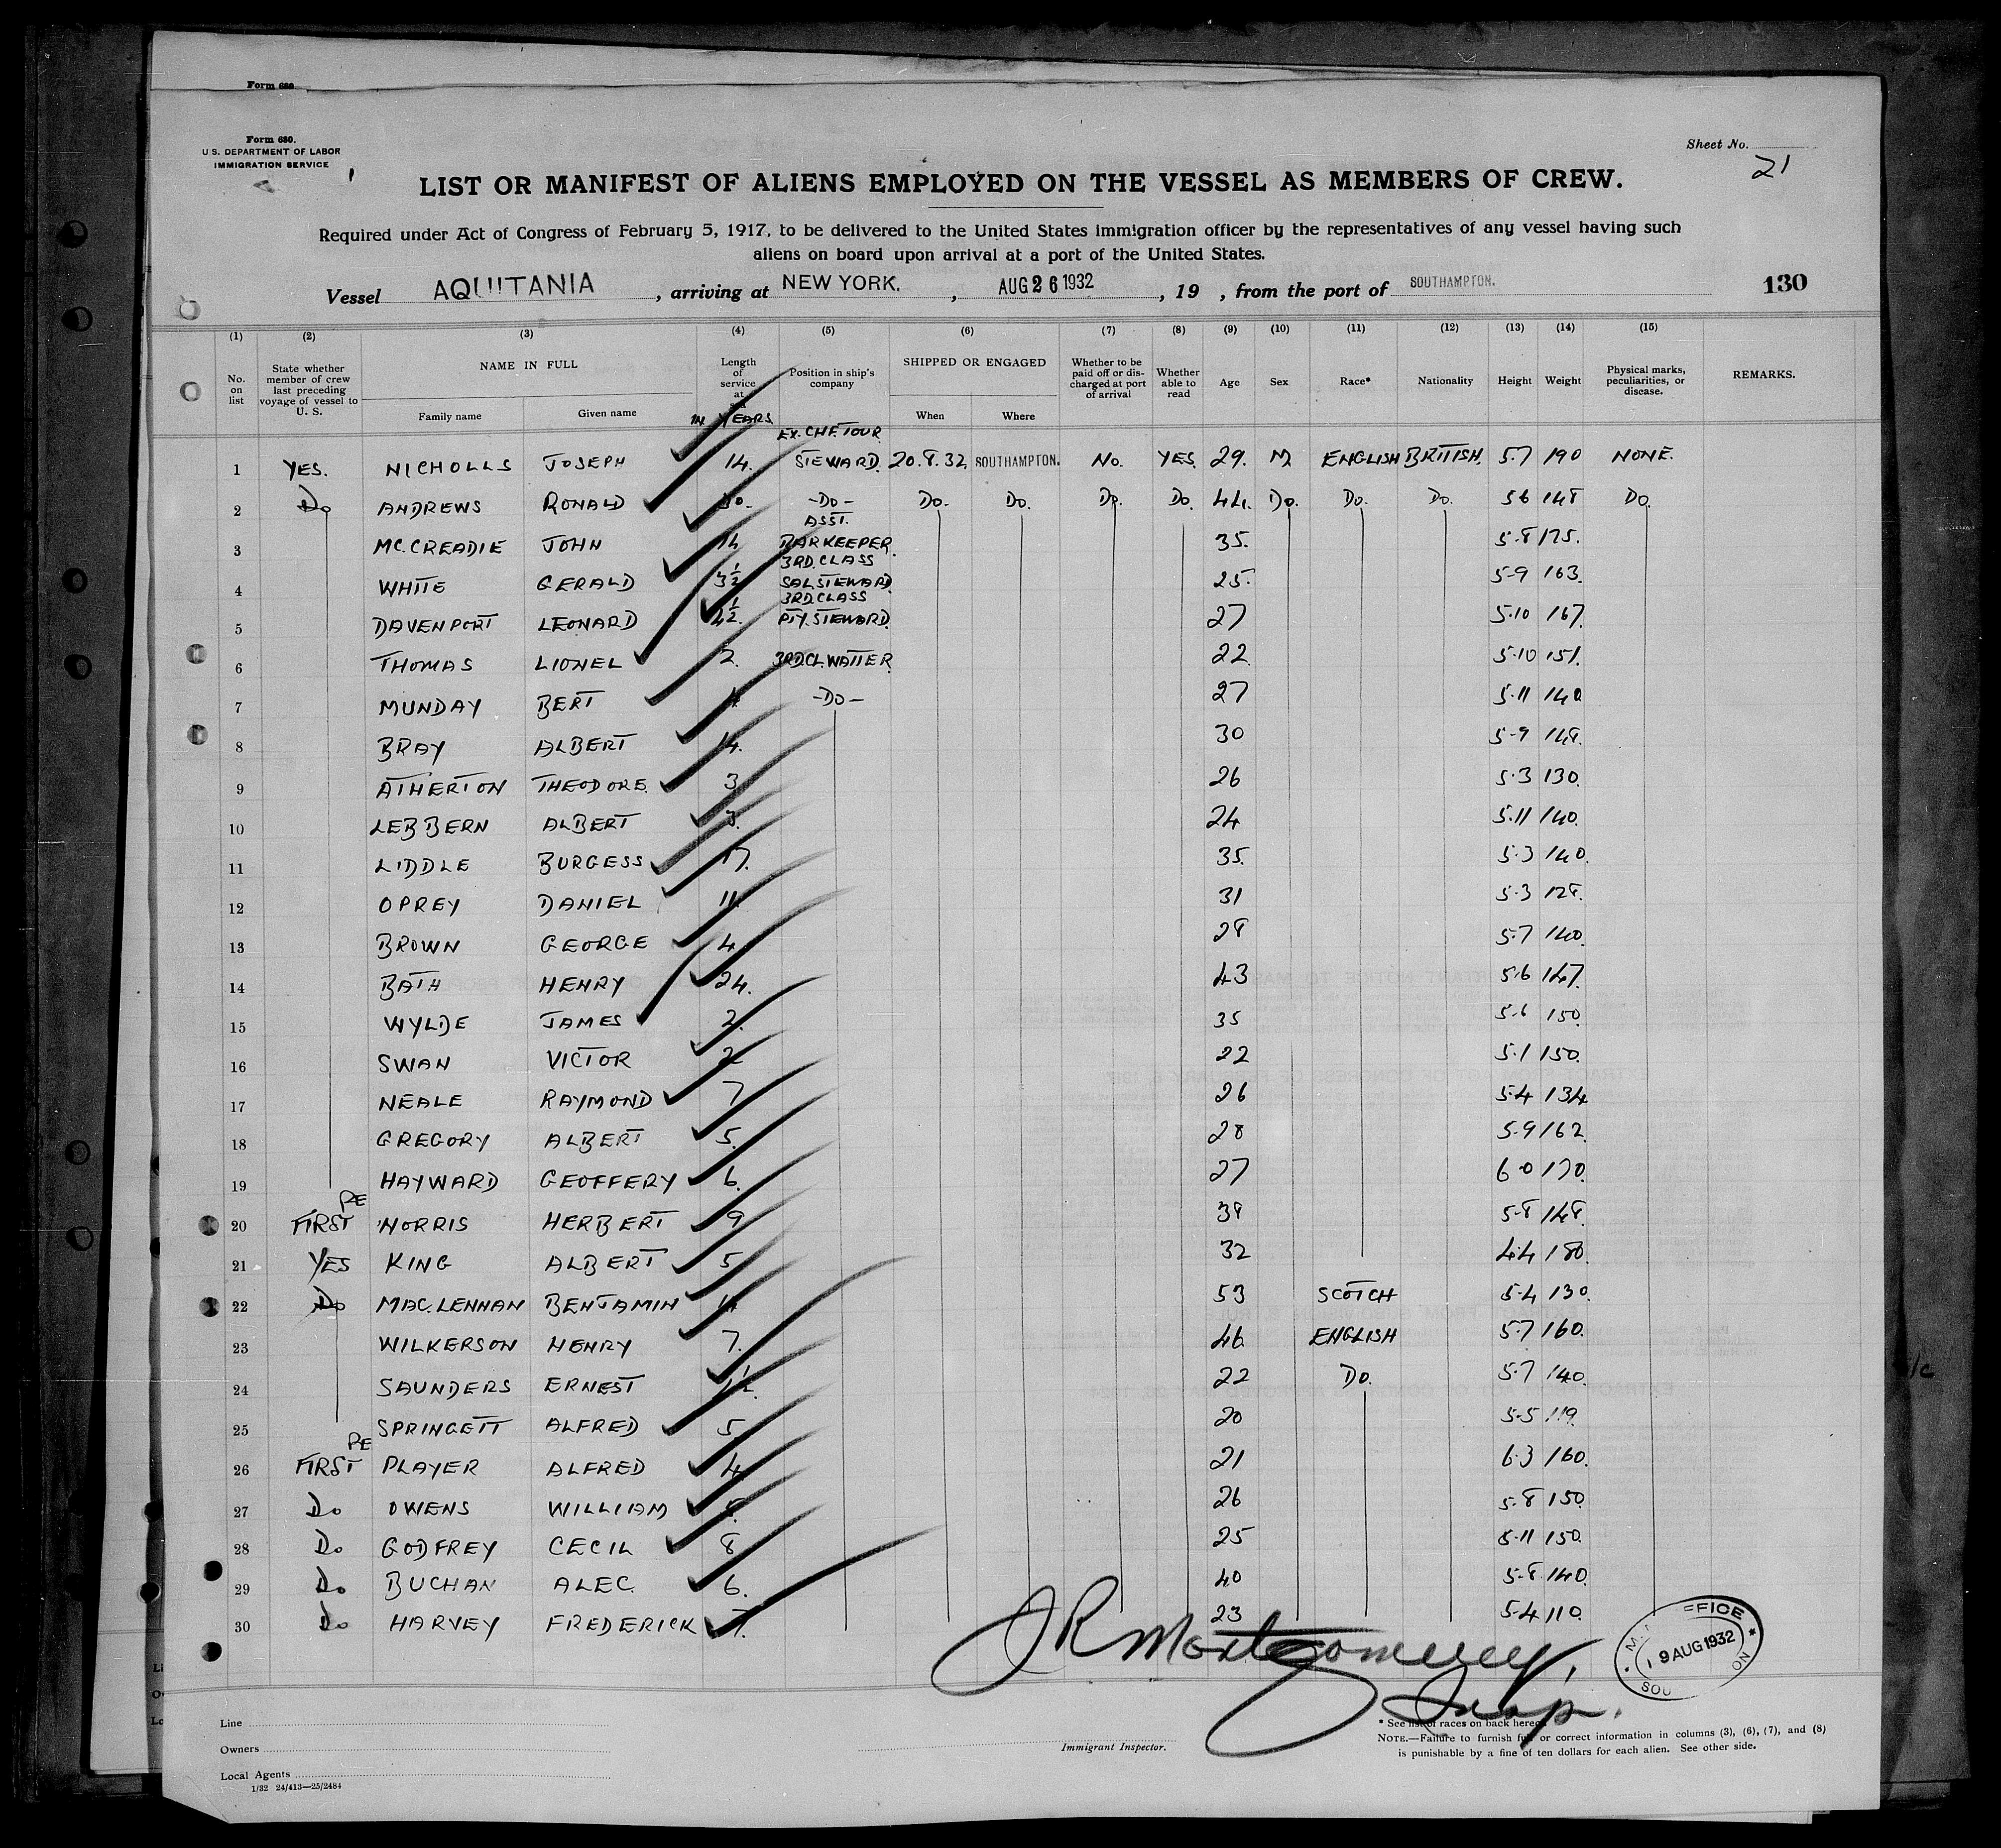 Form 680
Form 680.
U.S. DEPARTMENT OF LABOR
IMMIGRATION SERVICE
Sheet No.
21
LIST OR MANIFEST OF ALIENS EMPLOYED ON THE VESSEL AS MEMBERS OF CREW.
Required under Act of Congress of February 5, 1917, to be delivered to the United States immigration officer by the representatives of any vessel having such
aliens on board upon arrival at a port of the United States.
Vessel AQUITANIA, arriving at NEW YORK., AUG 26 1932, 19 , from the port of SOUTHAMPTON. 130
(1) (2) (3) (4) (5) (6) (7) (8) (9) (10) (11) (12) (13) (14) (15)
No. on list State whether member of crew last preceding voyage of vessel to U. S. NAME IN FULL Family name Given name Length of service at IN YEARS Position in ship's company SHIPPED OR ENGAGED When Where Whether to be paid off or discharged at port of arrival Whether able to read Age Sex Race* Nationality Height Weight Physical marks, peculiarities, or disease. REMARKS.
EX. CHF. TOUR
1 YES. NICHOLLS JOSEPH 14. STEWARD. 20.8.32 SOUTHAMPTON. NO. YES. 29. M ENGLISH BRITISH. 5.7 190 NONE.
2 DO ANDREWS RONALD 30. -DO- DO. DO. DO. DO. 44. DO. DO. DO. 5 6 148 DO.
ASST.
3 MC.CREADIE JOHN 14 BARKEEPER. 35. 5-8 175.
3RD. CLASS
4 WHITE GERALD 3½ SAL STEWARD. 25. 5-9 163.
3RD CLASS
5 DAVENPORT LEONARD 4½. PTY. STEWARD. 27 5.10 167.
6 THOMAS LIONEL 2. 3RD.CL.WAITER. 22. 5.10 151.
7 MUNDAY BERT -DO- 27 5.11 140
8 BRAY ALBERT 14. 30 5-9 148.
9 ATHERTON THEODORE. 3 26 5.3 130.
10 LEBBERN ALBERT 3. 24 5.11 140.
11 LIDDLE BURGESS 17. 35. 5.3 140.
12 OPREY DANIEL 11 31 5.3 128.
13 BROWN GEORGE 4 28 5.7 140.
14 BATH HENRY 24. 43 5.6 147.
15 WYLDE JAMES 2. 35 5.6 150.
16 SWAN VICTOR 2 22 5.1 150.
17 NEALE RAYMOND 7 26 5.4 134
18 GREGORY ALBERT 5. 28 5.9 162.
19 HAYWARD GEOFFERY 6. 27 6 0 170.
RE
20 FIRST NORRIS HERBERT 9 38 5-8 148.
21 YES KING ALBERT 5 32 4.4 180.
22 DO MAC.LENNAN BENJAMIN 14 53 SCOTCH 5.4 130.
23 WILKERSON HENRY 7. 46. ENGLISH 5.7 160.
24 SAUNDERS ERNEST 22 DO. 5.7 140.
25 SPRINGETT ALFRED 5. 20 5-5 119.
RE
26 FIRST PLAYER ALFRED 4. 21 6.3 160.
27 DO OWENS WILLIAM 26 5.8 150.
28 DO GODFREY CECIL 8 25 5.11 150.
29 DO BUCHAN ALEC. 6. 40 5.8 140.
30 DO HARVEY FREDERICK 7. 23 5.4 110.
JR Montgomery,
Insp.
OFFICE
19 AUG 1932
SOU
Line
Owners
Immigrant Inspector.
Local Agents
1/32 24/413—25/2484
* See list of races on back hereof
NOTE.—Failure to furnish full or correct information in columns (3), (6), (7), and (8)
is punishable by a fine of ten dollars for each alien. See other side.